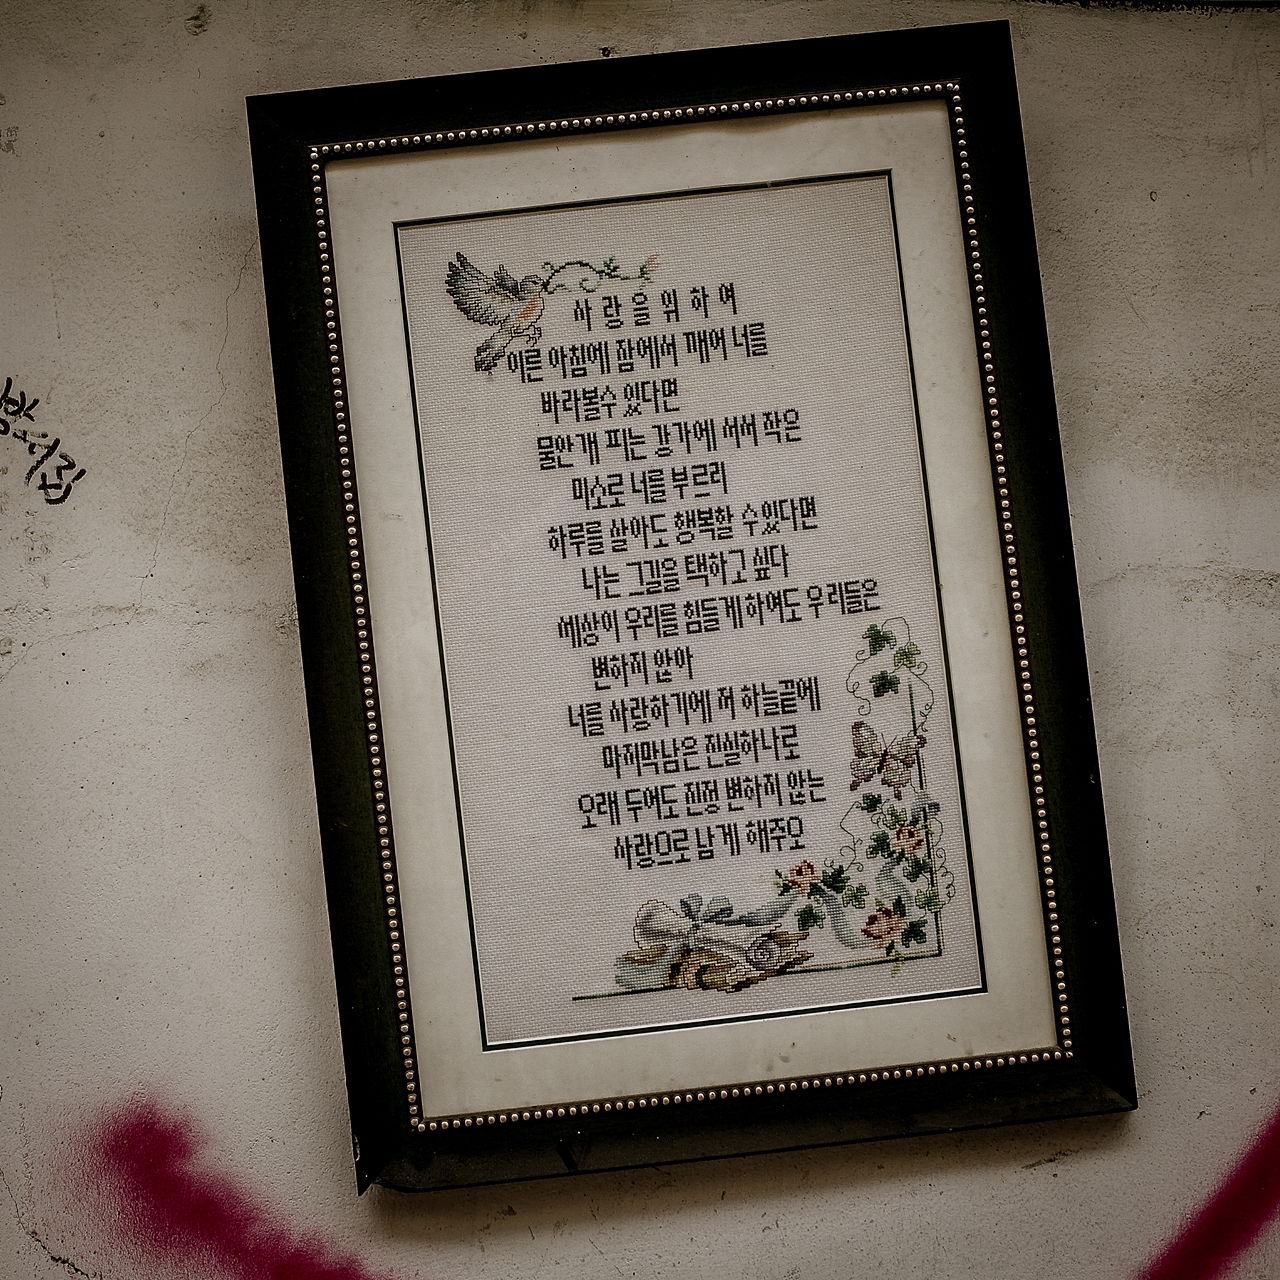 사랑을 위하여
이른 아침에 잠에서 깨어 너를
바라볼수 있다면
물안개 피는 강가에 서서 작은
미소로 너를 부르리
하루를 살아도 행복할 수있다면
나는 그길을 택하고 싶다
세상이 우리를 힘들게하여도 우리들은
변하지 않아
너를 사랑하기에 저 하늘끝에
마지막남은 진실하나로
오래 두어도 진정 변하지 않는
사랑으로 남게 해주오